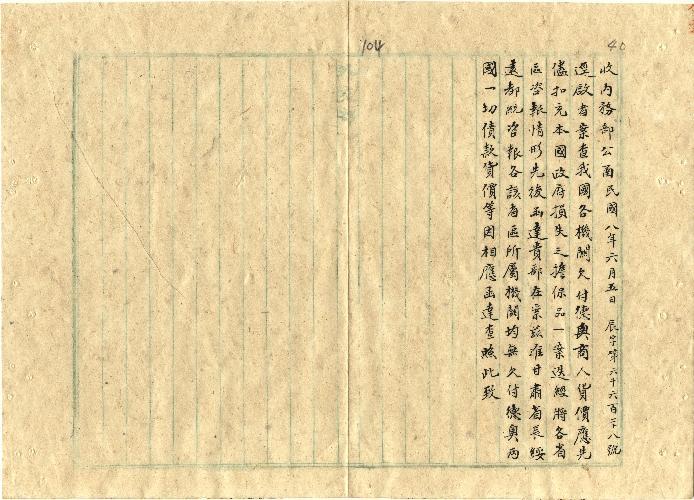 104
40
收內務部公函民國八年六月五日 辰字第六千六百二十八號
逕啟者案查我國各機關欠付德奧商人貨價應先
儘扣充本國政府損失之擔保品一案迭經將各省
區咨報情形先後函達貴部在案茲准甘肅省長綏
遠都統咨報各該省區所屬機關均無欠付德奧兩
國一切債款貨價等因相應函達查照此致